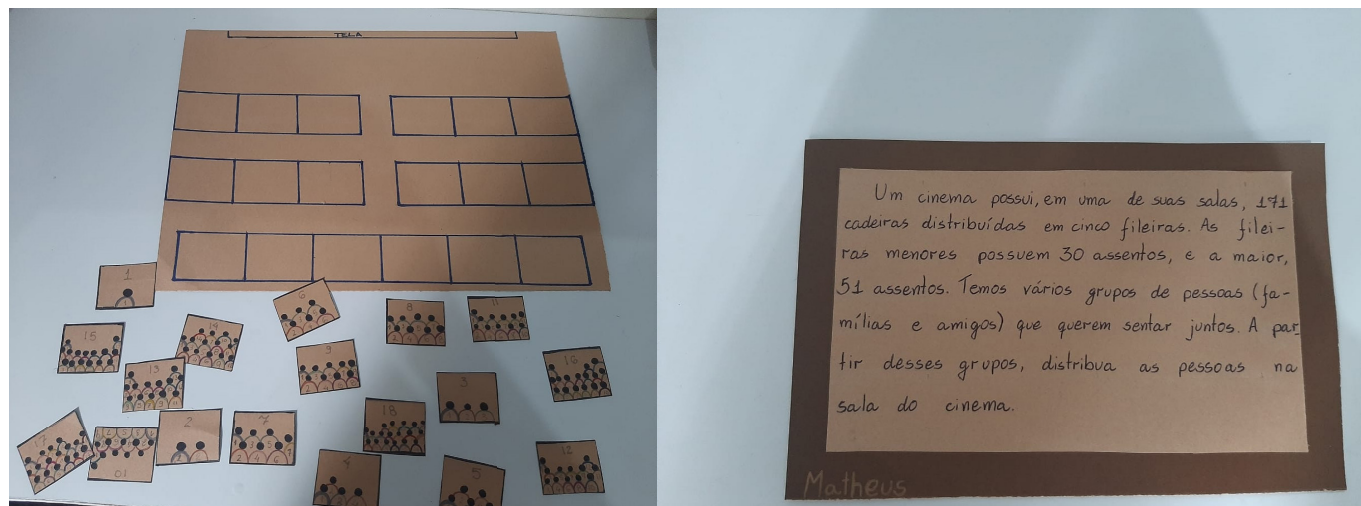 TELA
1
6
8
11
15
14
9
16
13
3
2
7
18
17
10
4
5
12
Um cinema possui, em uma de suas salas, 171
cadeiras distribuídas em cinco fileiras. As filei-
ras menores possuem 30 assentos, e a maior,
51 assentos. Temos vários grupos de pessoas (fa-
mílias e amigos) que querem sentar juntos. A par-
tir desses grupos, distribua as pessoas na
sala do cinema.
Matheus